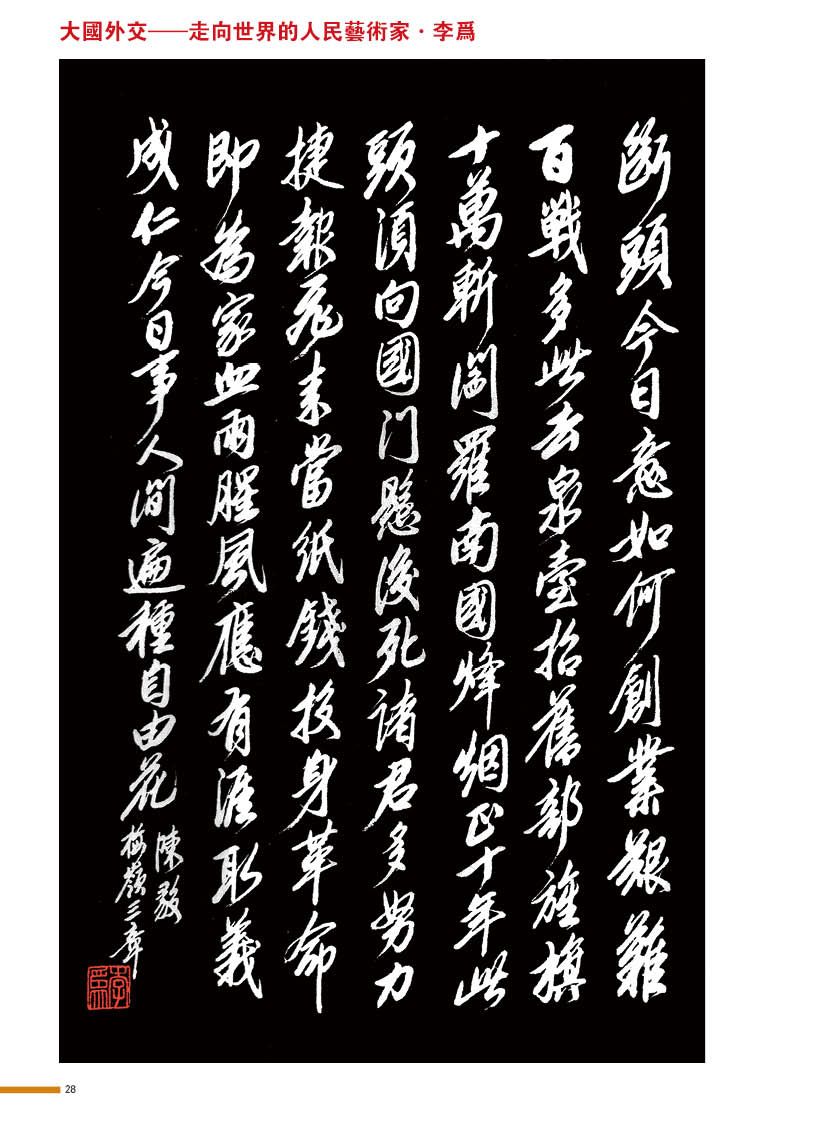 大國外交——走向世界的人民藝術家·李爲
斷頭今日意如何創業艱難
百戰多此去泉臺招舊部旌旗
十萬斬閻羅南國烽烟正十年此
頭須向國门懸後死諸君多努力
捷報飛來當紙錢投身革命
即為家血雨腥風應有涯取義
成仁今日事人间遍種自由花
陳毅
梅嶺三章
李爲
28